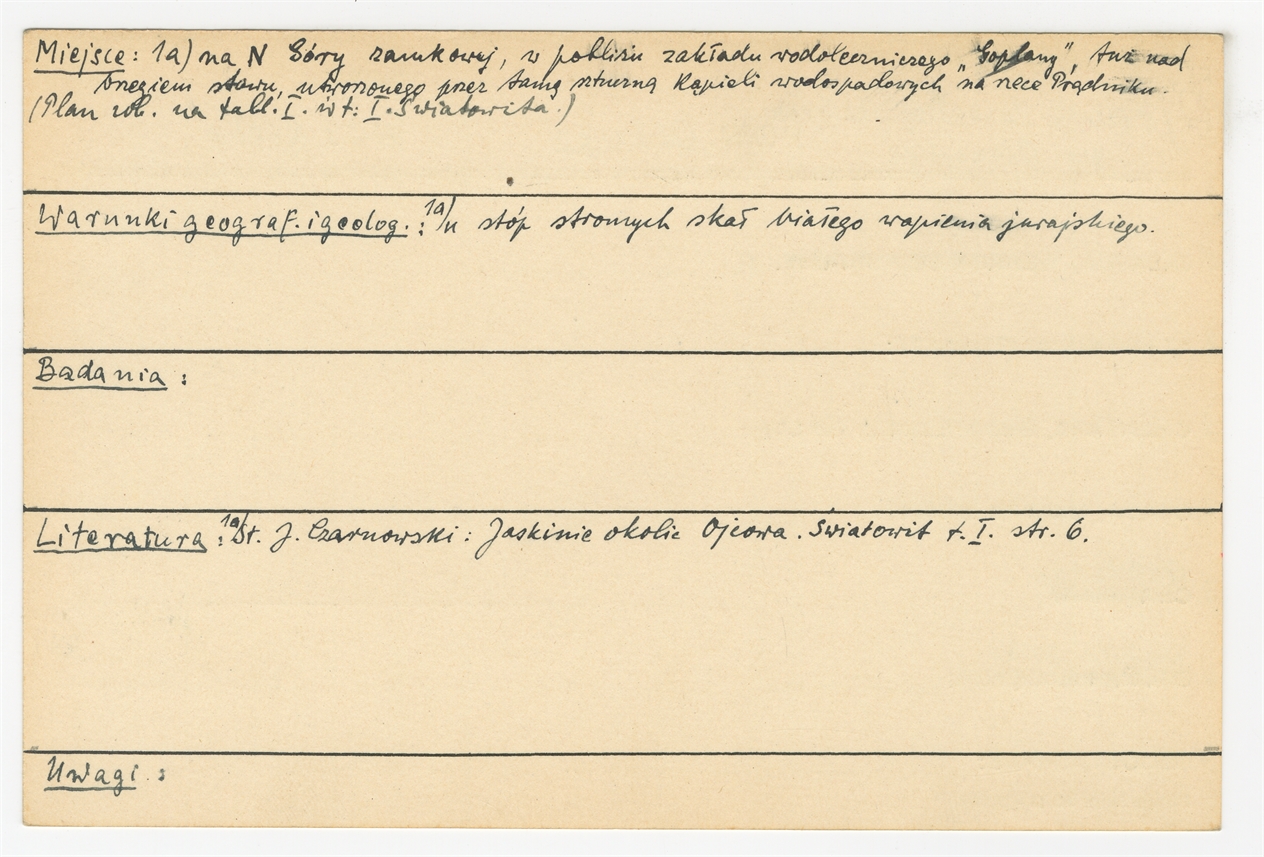 Miejsce: 1a) na N Góry zamkowej, w pobliżu zakładu wodoleczniczego „Goplany", tuż nad
brzegiem stawu, utworzonego przez tamę sztuczną kąpieli wodospadowych na rzece Prądniku.
(Plan zob. na tabl. I. w t. I. Światowita.)
Warunki geograf. i geolog.: 1a/ u stóp stromych skał białego wapienia jurajskiego.
Badania :
Literatura : 1a/ St. J. Czarnowski : Jaskinie okolic Ojcowa. Światowit t. I. str. 6.
Uwagi :